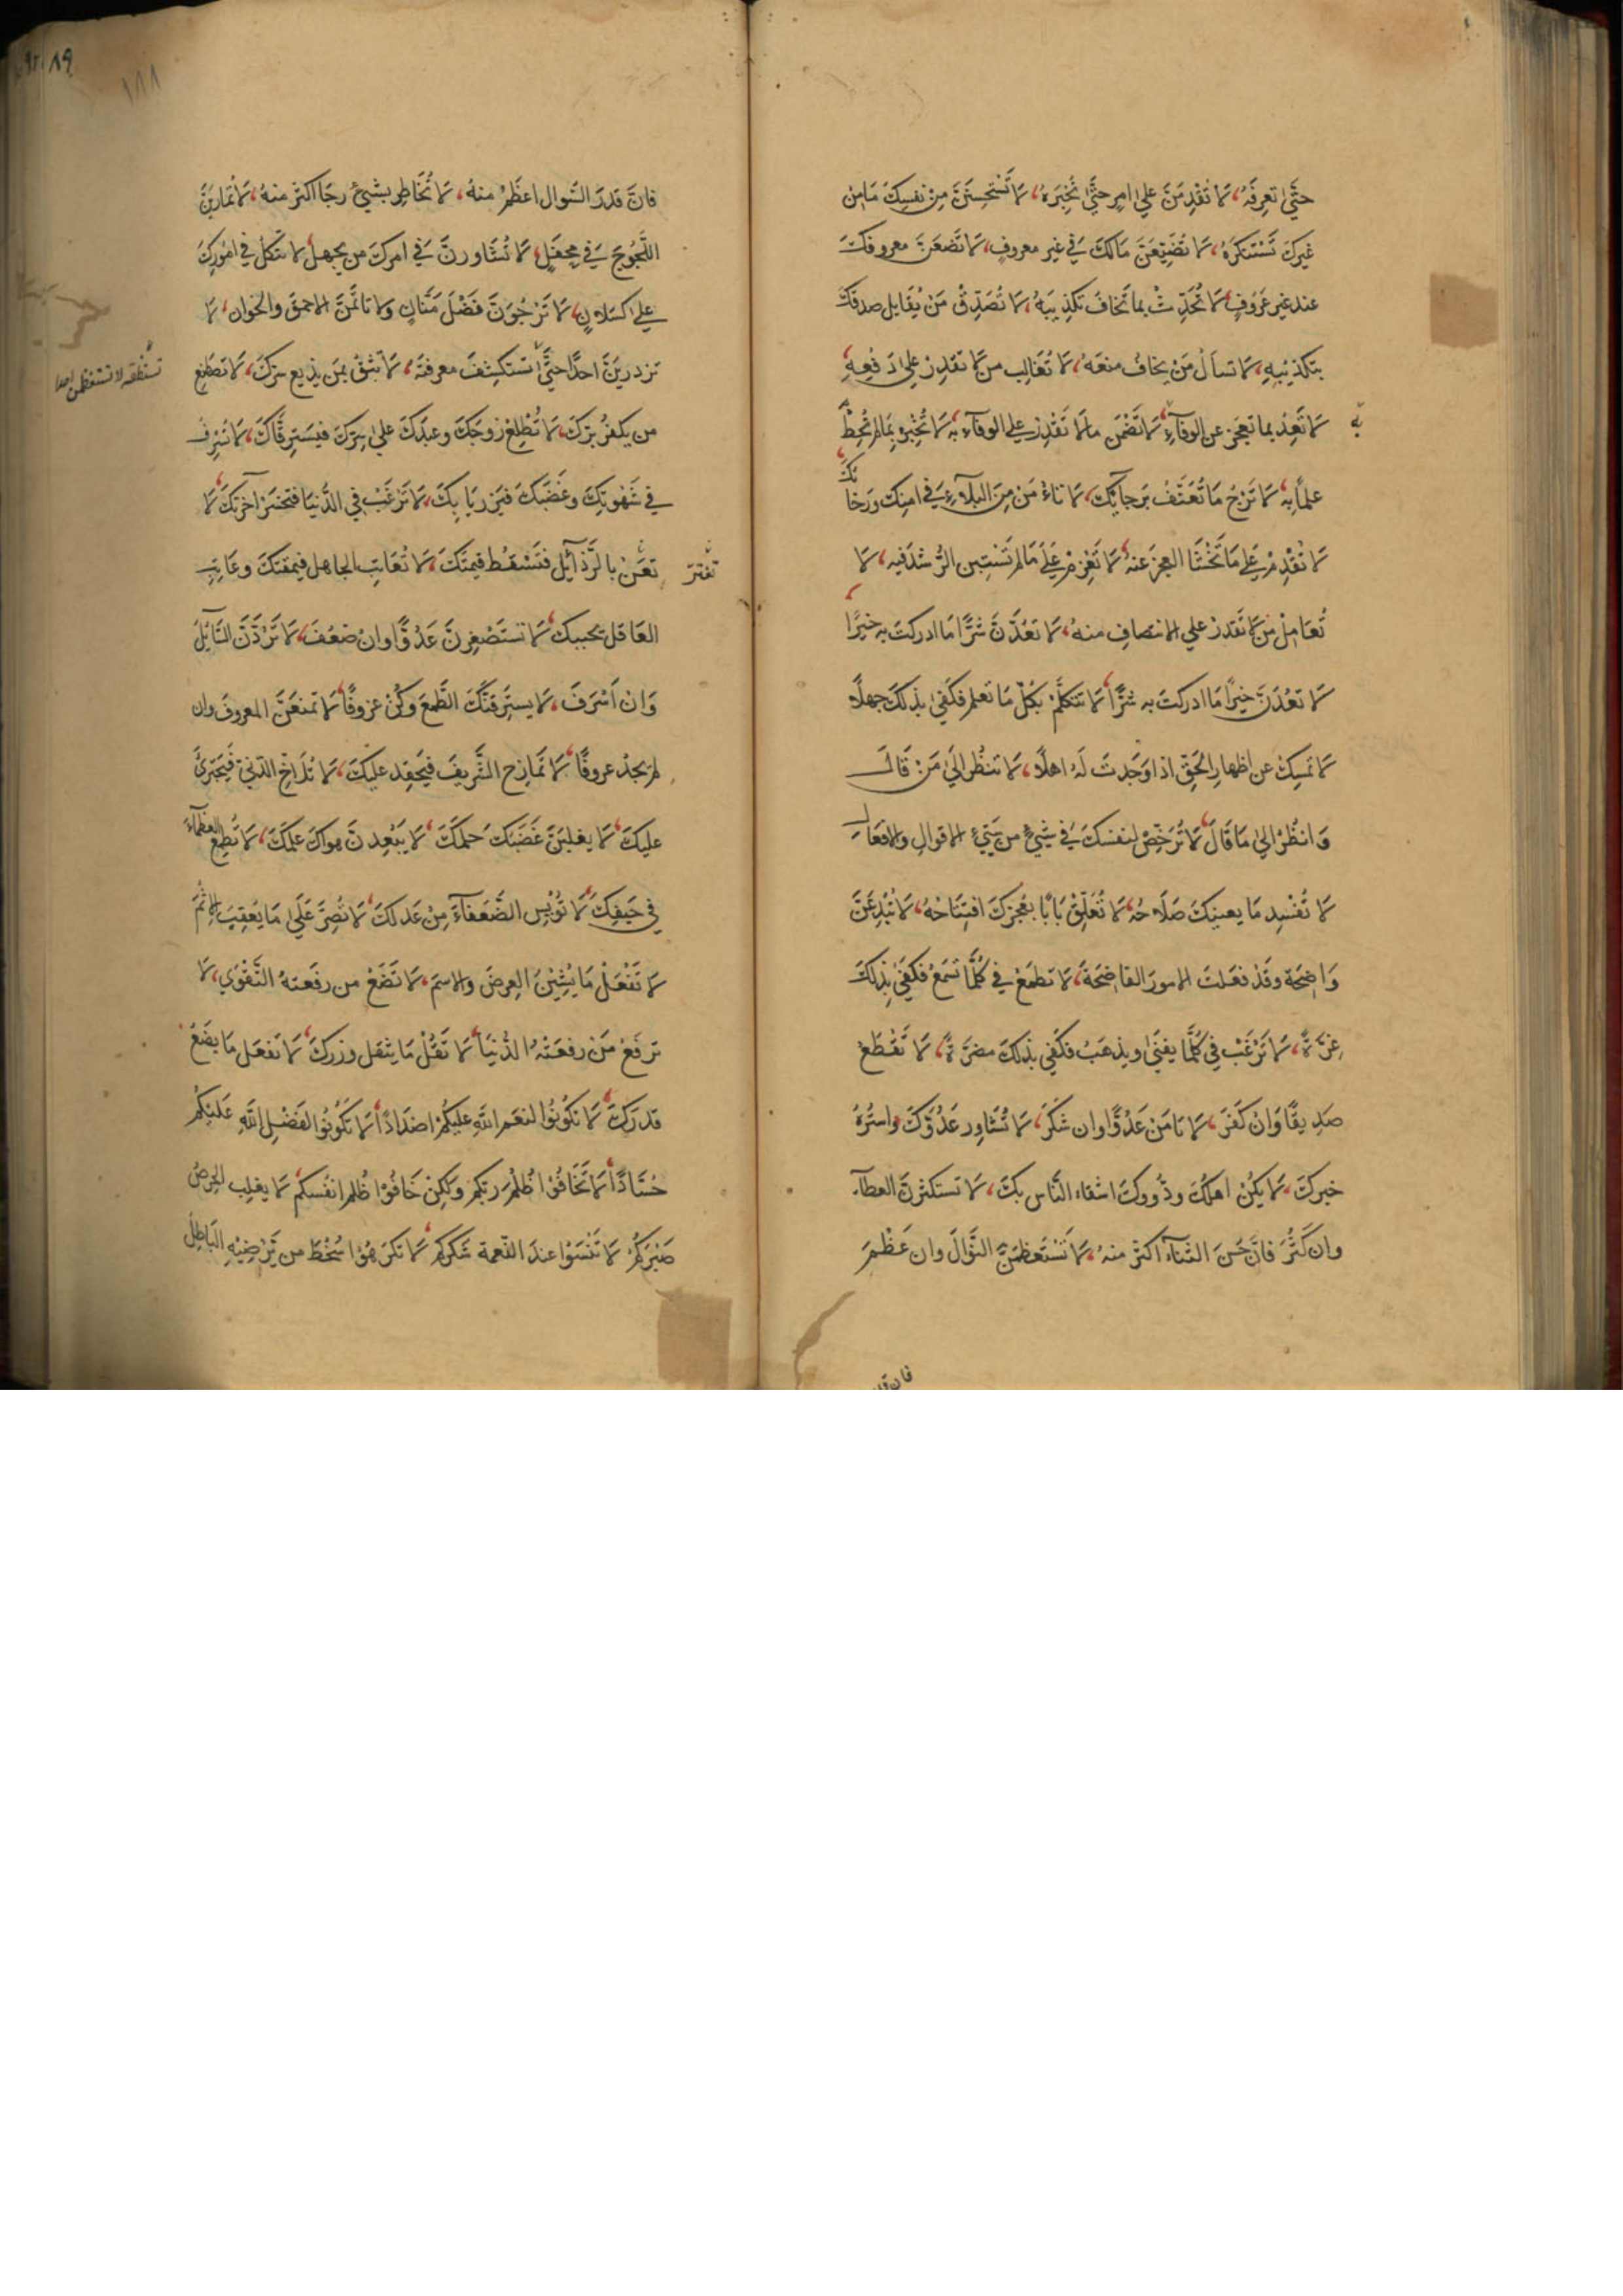 حتّى تعرفه، لا تقدمنّ على امر حتّى تخبره، لا تستحسننّ من نفسك ما من
غيرك تستنكره، لا تضيّعنّ مالك في غير معروف، لا تضعنّ معروفك
عند غير عروف، لا تحدّث بما تخاف تكذيبه، لا تصدّق من يقابل صدقك
بتكذيبه، لا تسأل من يخاف منعه، لا تغالب من لا تقدر على دفعه
لا تعد بما تعجز عن الوفآء، لا تضمن ما لا تقدر على الوفآء به، لا تخبر بما لم تحط
به
علماً به، لا ترج ما تعنّف برجائك، لا تأمن من البلآء في امنك ورخائك
لا تقدم على ما تخشا العجز عنه، لا تعزم على ما لم تستبن الرّشد فيه، لا
تعامل من لا تقدر على الانتصاف منه، لا تعدّنّ شرّا ما ادركت به خيرًا
لا تعدّنّ خيرًا ما ادركت به شرًّا، لا تتكلّم بكلّ ما تعلم فكفى بذلك جهلًا
لا تمسك عن اظهار الحقّ اذا وجدت له اهلًا، لا تنظر الى من قال
وانظر الى ما قال، لا ترخّص لنفسك في شيئ من سيّئ الاقوال والافعال
لا تفسد ما يعنيك صلاحه، لا تغلق بابًا يعجزك افتتاحه، لا تبدعنّ
واضحة وقد فعلت الامور الفاضحة، لا تطمع في كلّما تسمع فكفى بذلك
غرّة، لا ترغب في كلّما يفنى ويذهب فكفى بذلك مضرّة، لا تقطع
صديقًا وان كفر، لا تامن عدوًّا وان شكر، لا تشاور عدوّك واستره
خبرك، لا يكن اهلك وذووك اشقاء النّاس بك، لا تستكثرنّ العطآء
وان كثر فانّ حسن الثنآء اكثر منه، لا تستعظمنّ النّوال وان عظم
فان قد
٨٩
١٨٨
فانّ قدر السّوال اعظم منه، لا تخاطر بشيئ رجا اكثر منه، لا تمارينّ
اللّجوج في محفل، لا تشاورنّ في امرك من يجهل، لا تتّكل في امورك
على كسلان، لا ترجونّ فضل منّان ولا تأتمنّ الاحمق والخوان، لا
تزدرينّ احدًا حتّى تستكشف معرفته، لا تثق بمن يذيع سرّك، لا تصطنع
تستنطقه لا تستعظمن احدا
من يكفر برّك، لا تطلع زوجك وعبدك على سرّك فيسترقّاك، لا تسرف
في شهوتك وغضبك فيزريا بك، لا ترغب في الدّنيا فتخسر آخرتك، لا
تغترّ
تعنّ بالرّذآئل فتسقط قيمتك، لا تعاتب الجاهل فيمقتك وعاتب
العاقل يحببك، لا تستصغرنّ عدوًّا وان ضعف، لا تردّنّ السّائل
وان اسرف، لا يسترقنّك الطّمع وكن عزوفًا، لا تمنعنّ المعروف وان
لم يجد عروفًا، لا تمازح الشّريف فيحقد عليك، لا تلاخ الدّني فيجترئ
عليك، لا يغلبنّ غضبك حلمك، لا يبعدنّ هواك علمك، لا تطمع العظمآء
في حيفك، لا تويس الضّعفآء من عدلك، لا تصرّ على ما يعقب الاثم
لا تفعل ما يشين العرض والاسم، لا تضع من رفعته التّقوي، لا
ترفع من رفعته الدّنيا، لا تقل ما يثقل وزرك، لا تفعل ما يضع
قدرك، لا تكونوا لنعم اللّه عليكم اضدادًا، لا تكونوا لفضل اللّه عليكم
حسّادًا، لا تخافوا ظلم ربّكم ولكن خافوا ظلم انفسكم، لا يغلب الحرص
صبركم، لا تنسوا عند النّعمة شكركم، لا تكرهوا سخط من يرضيه الباطل